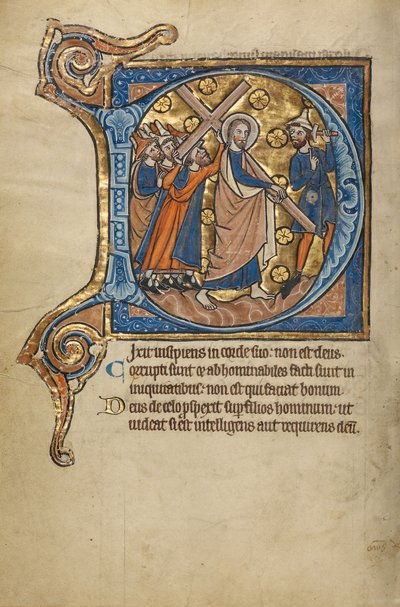 Dixit insipiens in corde suo: non est deus.
Corrupti sunt et abhominabiles facti sunt in
iniquitatibus: non est qui faciat bonum
Deus de celo prospexit super filios hominum: ut
uideat si est intelligens aut requirens deum.